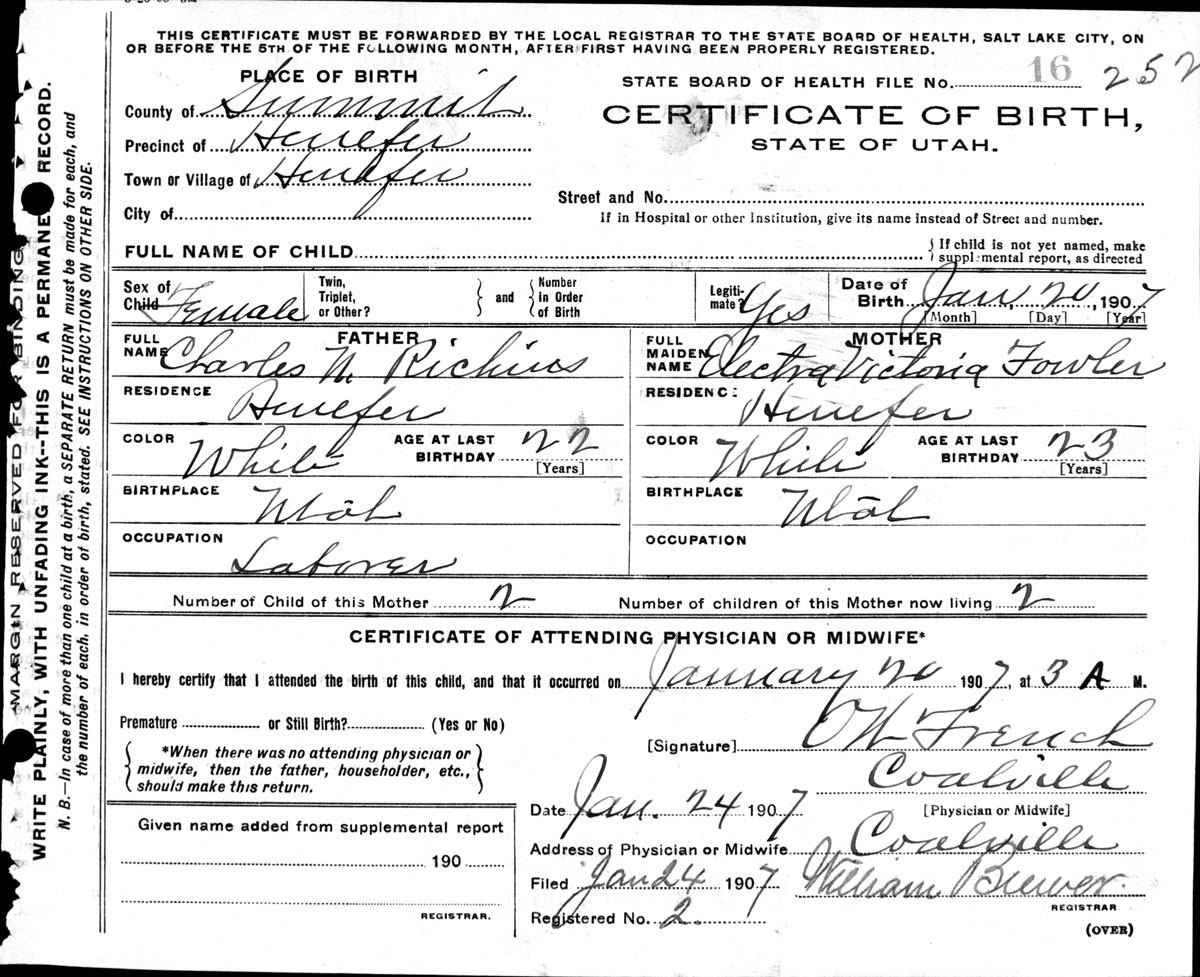 THIS CERTIFICATE MUST BE FORWARDED BY THE LOCAL REGISTRAR TO THE STATE BOARD OF HEALTH, SALT LAKE CITY, ON
OR BEFORE THE 5TH OF THE FOLLOWING MONTH, AFTER FIRST HAVING BEEN PROPERLY REGISTERED.
PLACE OF BIRTH
County of Summit
Precinct of Henefer
Town or Village of Henefer
City of
STATE BOARD OF HEALTH FILE No. 16 252
CERTIFICATE OF BIRTH,
STATE OF UTAH.
Street and No.
If in Hospital or other Institution, give its name instead of Street and number.
FULL NAME OF CHILD
{ If child is not yet named, make
supplemental report, as directed
Sex of Child Female
Twin, Triplet, or Other? } and { Number in Order of Birth
Legiti-mate? Yes
Date of Birth Jan, 20, 1907
[Month] [Day] [Year]
FATHER
FULL NAME Charles N. Richins
RESIDENCE Henefer
COLOR White AGE AT LAST BIRTHDAY 22
[Years]
BIRTHPLACE Utah
OCCUPATION Laborer
MOTHER
FULL MAIDEN NAME Electra Victoria Fowler
RESIDENCE Henefer
COLOR White AGE AT LAST BIRTHDAY 23
[Years]
BIRTHPLACE Utah
OCCUPATION
Number of Child of this Mother 2 Number of children of this Mother now living 2
CERTIFICATE OF ATTENDING PHYSICIAN OR MIDWIFE*
I hereby certify that I attended the birth of this child, and that it occurred on January 20 1907, at 3 A M.
Premature or Still Birth? (Yes or No)
{ *When there was no attending physician or
midwife, then the father, householder, etc.,
should make this return. }
[Signature] O W French
Coalville
[Physician or Midwife]
Date Jan. 24 1907
Address of Physician or Midwife Coalville
Filed Jan 24 1907 William Brewer.
REGISTRAR
Registered No. 2.
(OVER)
Given name added from supplemental report
190
REGISTRAR.
MARGIN RESERVED FOR BINDING
WRITE PLAINLY, WITH UNFADING INK--THIS IS A PERMANENT RECORD.
N. B.—In case of more than one child at a birth, a SEPARATE RETURN must be made for each, and
the number of each, in order of birth, stated. SEE INSTRUCTIONS ON OTHER SIDE.